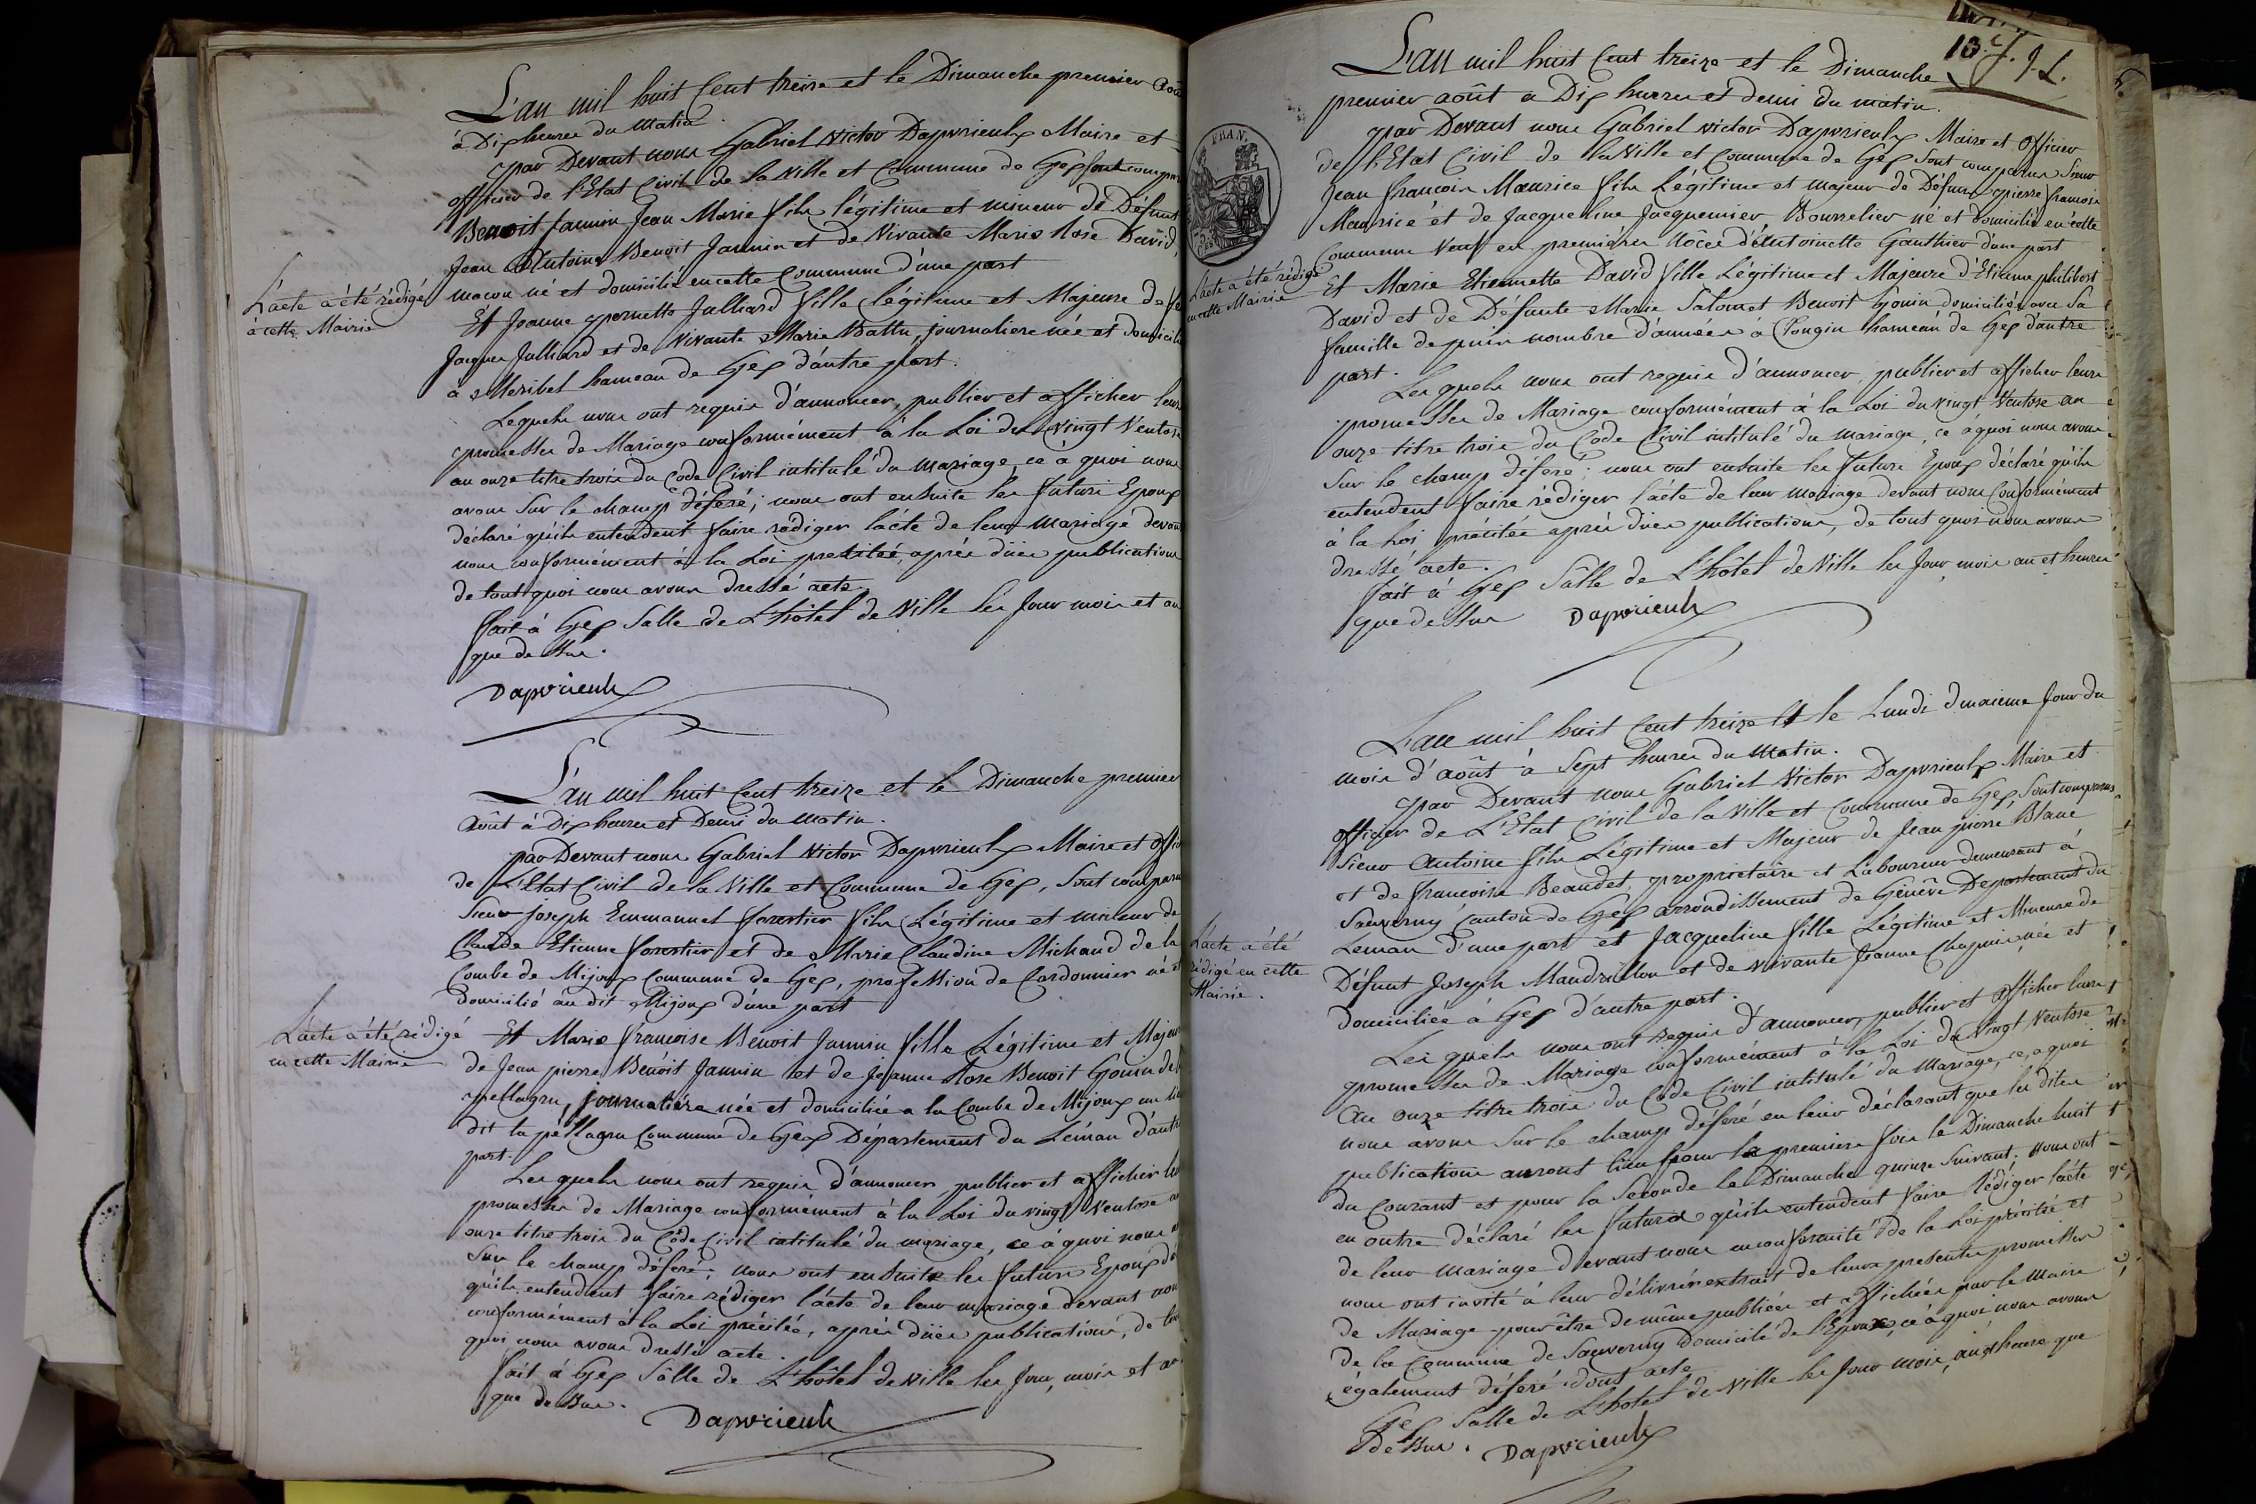 L'an mil huit Cent treize et le Dimanche premier Août
à Dix heures du Matin.
par Devant nous Gabriel Victor Dapvrieulx Maire et
officier de l'Etat Civil de la Ville et Commune de Gex sont compar
Benoit Jannin Jean Marie fils légitime et mineur de Défunt
Jean Antoine Benoit Jannin et de Vivante Marie Rose David,
macon né et domicilié en cette Commune d'une part
Et Jeanne pernette Julliard fille légitime et Majeure de
Jacques Julliard et de Vivante Marie Battu, journaliere née et domicili
à Meribel hameau de Gex d'autre part.
Lesquels nous ont requis d'annoncer, publier et afficher leurs
promesses de Mariage conformément à la Loi du Vingt Ventose
an onze titre trois du Code Civil intitulé du mariage, ce à quoi nous
avons sur le champ déféré; nous ont ensuite les futurs Epoux
déclaré qu'ils entendent faire rédiger l'acte de leur mariage devant
nous conformément à la Loi precitée, après dües publications
de tout quoi nous avons dressé acte.
fait à Gex Salle de L'hôtel de Ville les Jour mois et an
que dessus.
Dapvrieulx
L'acte a été rédigé
à cette Mairie
L'an mil huit Cent treize et le Dimanche premier
Août à Dix heures et Demi du matin.
par Devant nous Gabriel Victor Dapvrieulx Maire et offi
de L'Etat Civil de la Ville et Commune de Gex, sont comparu
Sieur Joseph Emmanuel forestier fils Légitime et mineur de
Claude Etienne forestier et de Marie Claudine Michaud de la
Combe de Mijoux Commune de Gex, profession de Cordonnier né et
Domicilié au dit Mijoux d'une part
Et Marie françoise Benoit Jannin fille Légitime et Majeur
de Jean pierre Benoit Jannin et de Jeanne Rose Benoit Gonin de
pellagru, journalière née et domiciliée a la Combe de Mijoux au lieu
dit la péllagru Commune de Gex Département du Léman d'autre
part.
Lesquels nous ont requis d'annoncer, publier et afficher leu
promesses de Mariage conformément à la Loi du vingt Ventose an
onze titre trois du Code Civil intitulé du mariage, ce à quoi nous
sur le champ déféré; nous ont ensuite les futurs Epoux dé
qu'ils entendent faire rédiger l'acte de leur mariage devant nous
conformément à la Loi précitée, après dües publications, de tou
quoi nous avons dressé acte.
fait à Gex Salle de L'hôtel de Ville les Jour, mois et an
que dessus.
Dapvrieulx
L'acte a été rédigé
en cette Mairie
13 J. J. L.
L'an mil huit Cent treize et le Dimanche
premier août à Dix heures et demi du matin.
par Devant nous Gabriel Victor Dapvrieulx Maire et officier
de l'Etat Civil de la Ville et Commune de Gex sont comparus Sieur
Jean françois Maurice fils Légitime et majeur de Défunt pierre françois
Maurice et de Jacqueline Jacquemier Bourrelier né et domicilié en cette
Commune Veuf en premières nôces d'Antoinette Gauthier d'une part
Et Marie Etiennette David fille Légitime et Majeure d'Etienne philibert
David et de Défunte Marie Salomet Benoit Gonin domiciliée avec Sa
famille depuis nombre d'années à hameau de Gex d'autre
part.
Lesquels nous ont requis d'annoncer, publier et afficher leurs
promesses de Mariage conformément à la Loi du vingt Ventose an
onze titre trois du Code Civil intitulé du mariage, ce à quoi nous avons
Sur le champ déféré; nous ont ensuite les futurs Epoux déclaré qu'ils
entendent faire rédiger l'acte de leur mariage devant nous conformément
à la Loi précitée après dües publications, de tout quoi nous avons
dressé acte.
fait à Gex Salle de L'hôtel de Ville les Jour, mois an et heures
que dessus Dapvrieulx
FRAN.
L'acte a été rédigé
en cette Mairie
L'an mil huit Cent treize et le Lundi deuxieme Jour du
mois d'août à Sept heures du matin.
par Devant nous Gabriel Victor Dapvrieulx Maire et
officier de L'Etat Civil de la Ville et Commune de Gex, sont comparus
Sieur Antoine fils Légitime et Majeur de Jean pierre Blanc
et de françoise Beaudet, propriétaire et Laboureur demeurant à
Sauverny Canton de Gex arrondissement de Genève Departement du
Leman d'une part et Jacqueline fille Légitime et Mineure de
Défunt Joseph Mandrillon et de vivante Jeanne Chapuis, née et
domiciliée à Gex d'autre part.
Lesquels nous ont requis d'annoncer, publier et afficher leurs
promesses de Mariage conformément à la Loi du Vingt Ventose
An onze titre trois du Code Civil intitulé du Mariage, ce, a quoi
nous avons sur le champ déféré en leur déclarant que les dites
publications auront lieu pour la premiere fois le Dimanche huit
du Courant et pour la Seconde le Dimanche quinze Suivant. nous ont
en outre déclaré les futurs qu'ils entendent faire Rédiger l'acte
de leur mariage devant nous en conformité de la Loi précitée et
nous ont invité à leur délivrer extrait de leurs presentes promesses
de Mariage pour être de même publiées et affichées par le Maire
de la Commune de Sauverny Domicile de l'Epoux, ce à quoi nous avons
également déféré dont acte
Gex Salle de L'hôtel de Ville les Jour mois, an et heure que
dessus. Dapvrieulx
L'acte a été
rédigé en cette
Mairie.